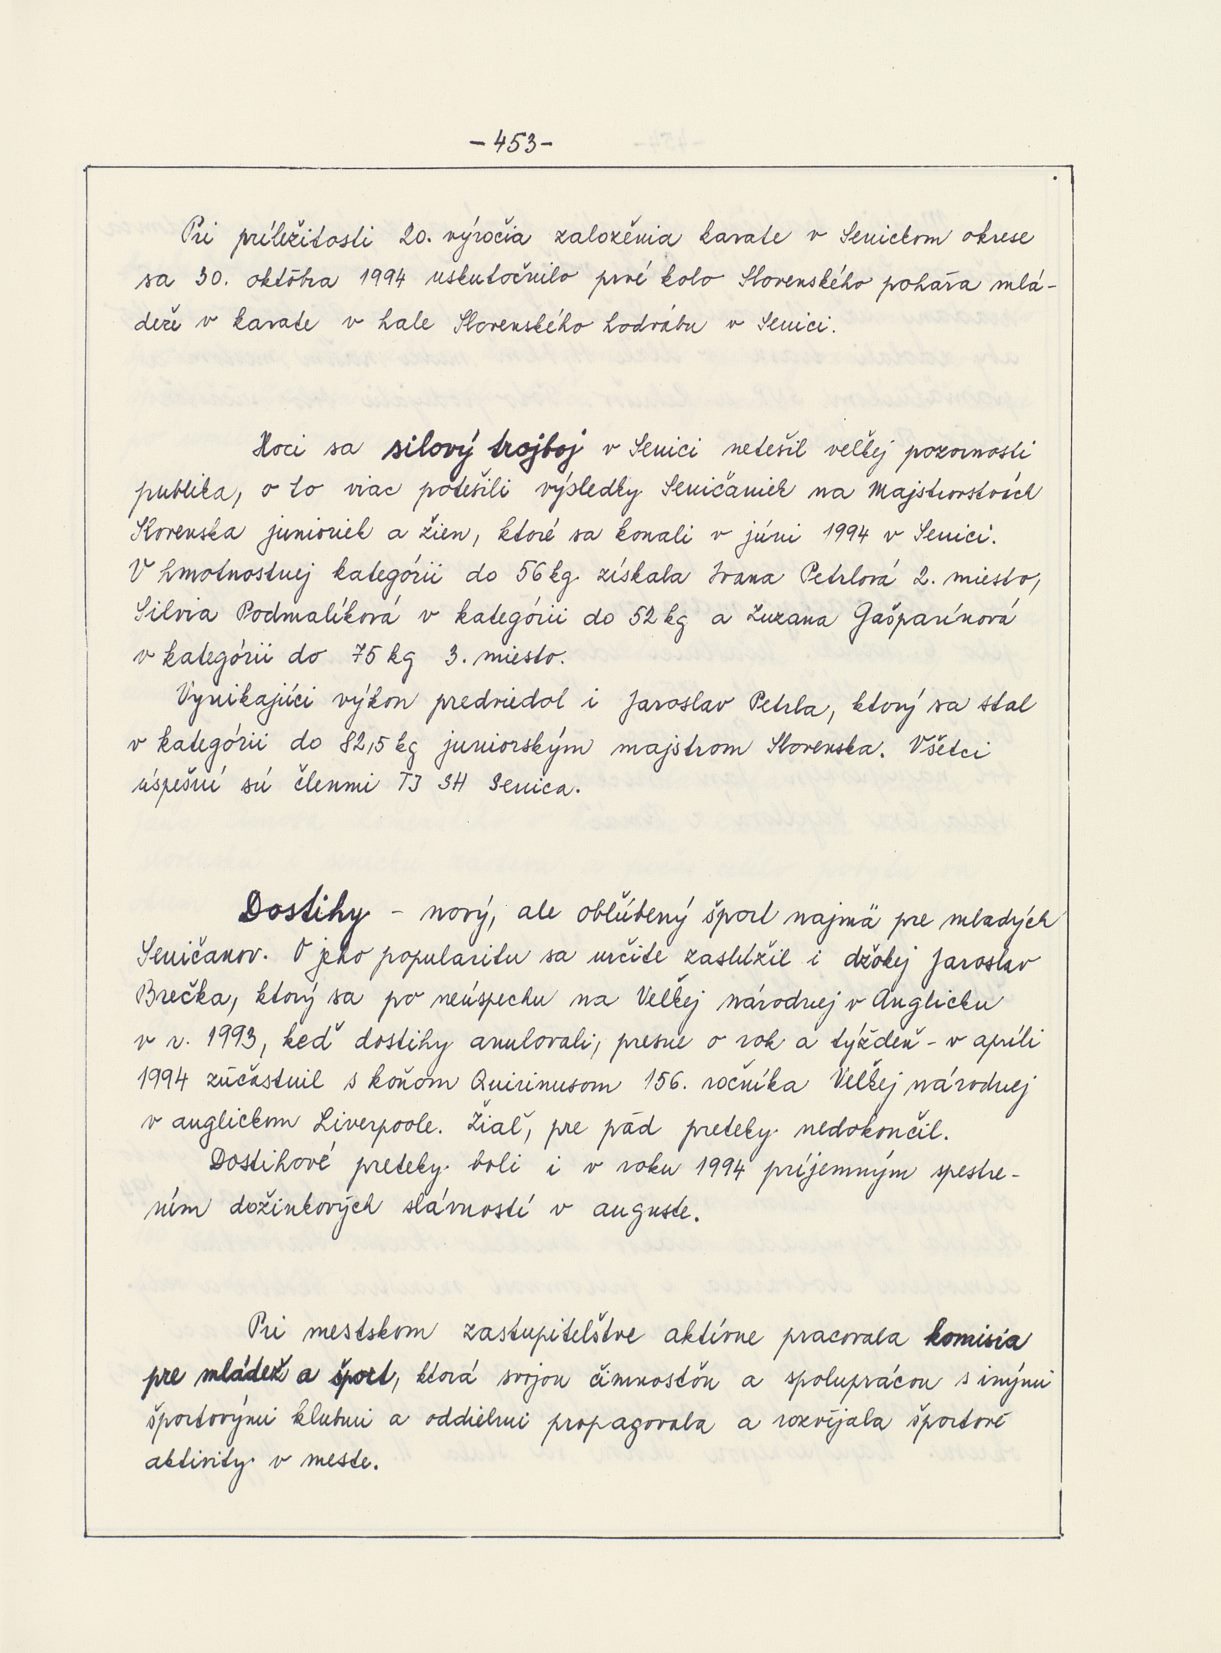 -453-
Pri príležitosti 20. výročia založenia karate v Senickom okrese
sa 30. októbra 1994 uskutočnilo prvé kolo Slovenského pohára mlá-
deže v karate v hale Slovenského hodvábu v Senici.
Hoci sa silový trojboj v Senici netešil veľkej pozornosti
publika, o to viac potešili výsledky Seničaniek na Majstrovstvách
Slovenska junioriek a žien, ktoré sa konali v júni 1994 v Senici.
V hmotnostnej kategórii do 56 kg získala Ivana Petrlová 2. miesto,
Silvia Podmalíková v kategórii do 52 kg a Zuzana Gašparínová
v kategórii do 75 kg 3. miesto.
Vynikajúci výkon predviedol i Jaroslav Petrla, ktorý sa stal
v kategórii do 82,5 kg juniorským majstrom Slovenska. Všetci
úspešní sú členmi TJ SH Senica.
Dostihy - nový, ale obľúbený šport najmä pre mladých
Seničanov. O jeho popularitu sa určite zaslúžil i džokej Jaroslav
Brečka, ktorý sa po neúspechu na Veľkej národnej v Anglicku
v r. 1993, keď dostihy anulovali, presne o rok a týždeň - v apríli
1994 zúčastnil s koňom Quirinusom 156. ročníka Veľkej národnej
v anglickom Liverpoole. Žiaľ, pre pád preteky nedokončil.
Dostihové preteky boli i v roku 1994 príjemným spestre-
ním dožinkových slávností v auguste.
Pri mestskom zastupiteľstve aktívne pracovala komisia
pre mládež a šport, ktorá svojou činnosťou a spoluprácou s inými
športovými klubmi a oddielmi propagovala a rozvíjala športové
aktivity v meste.